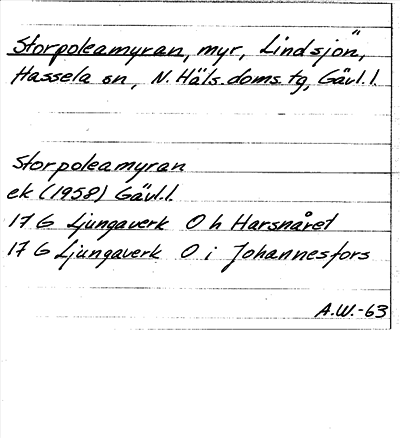 Storpoleamyran, myr, Lindsjön,
Hassela sn, N. Häls. doms. tg, Gävl. l.
Storpoleamyran
ek (1958) Gävl. l.
17 G Ljungaverk O h Harsnåret
17 G Ljungaverk O i Johannesfors
A.W.-63